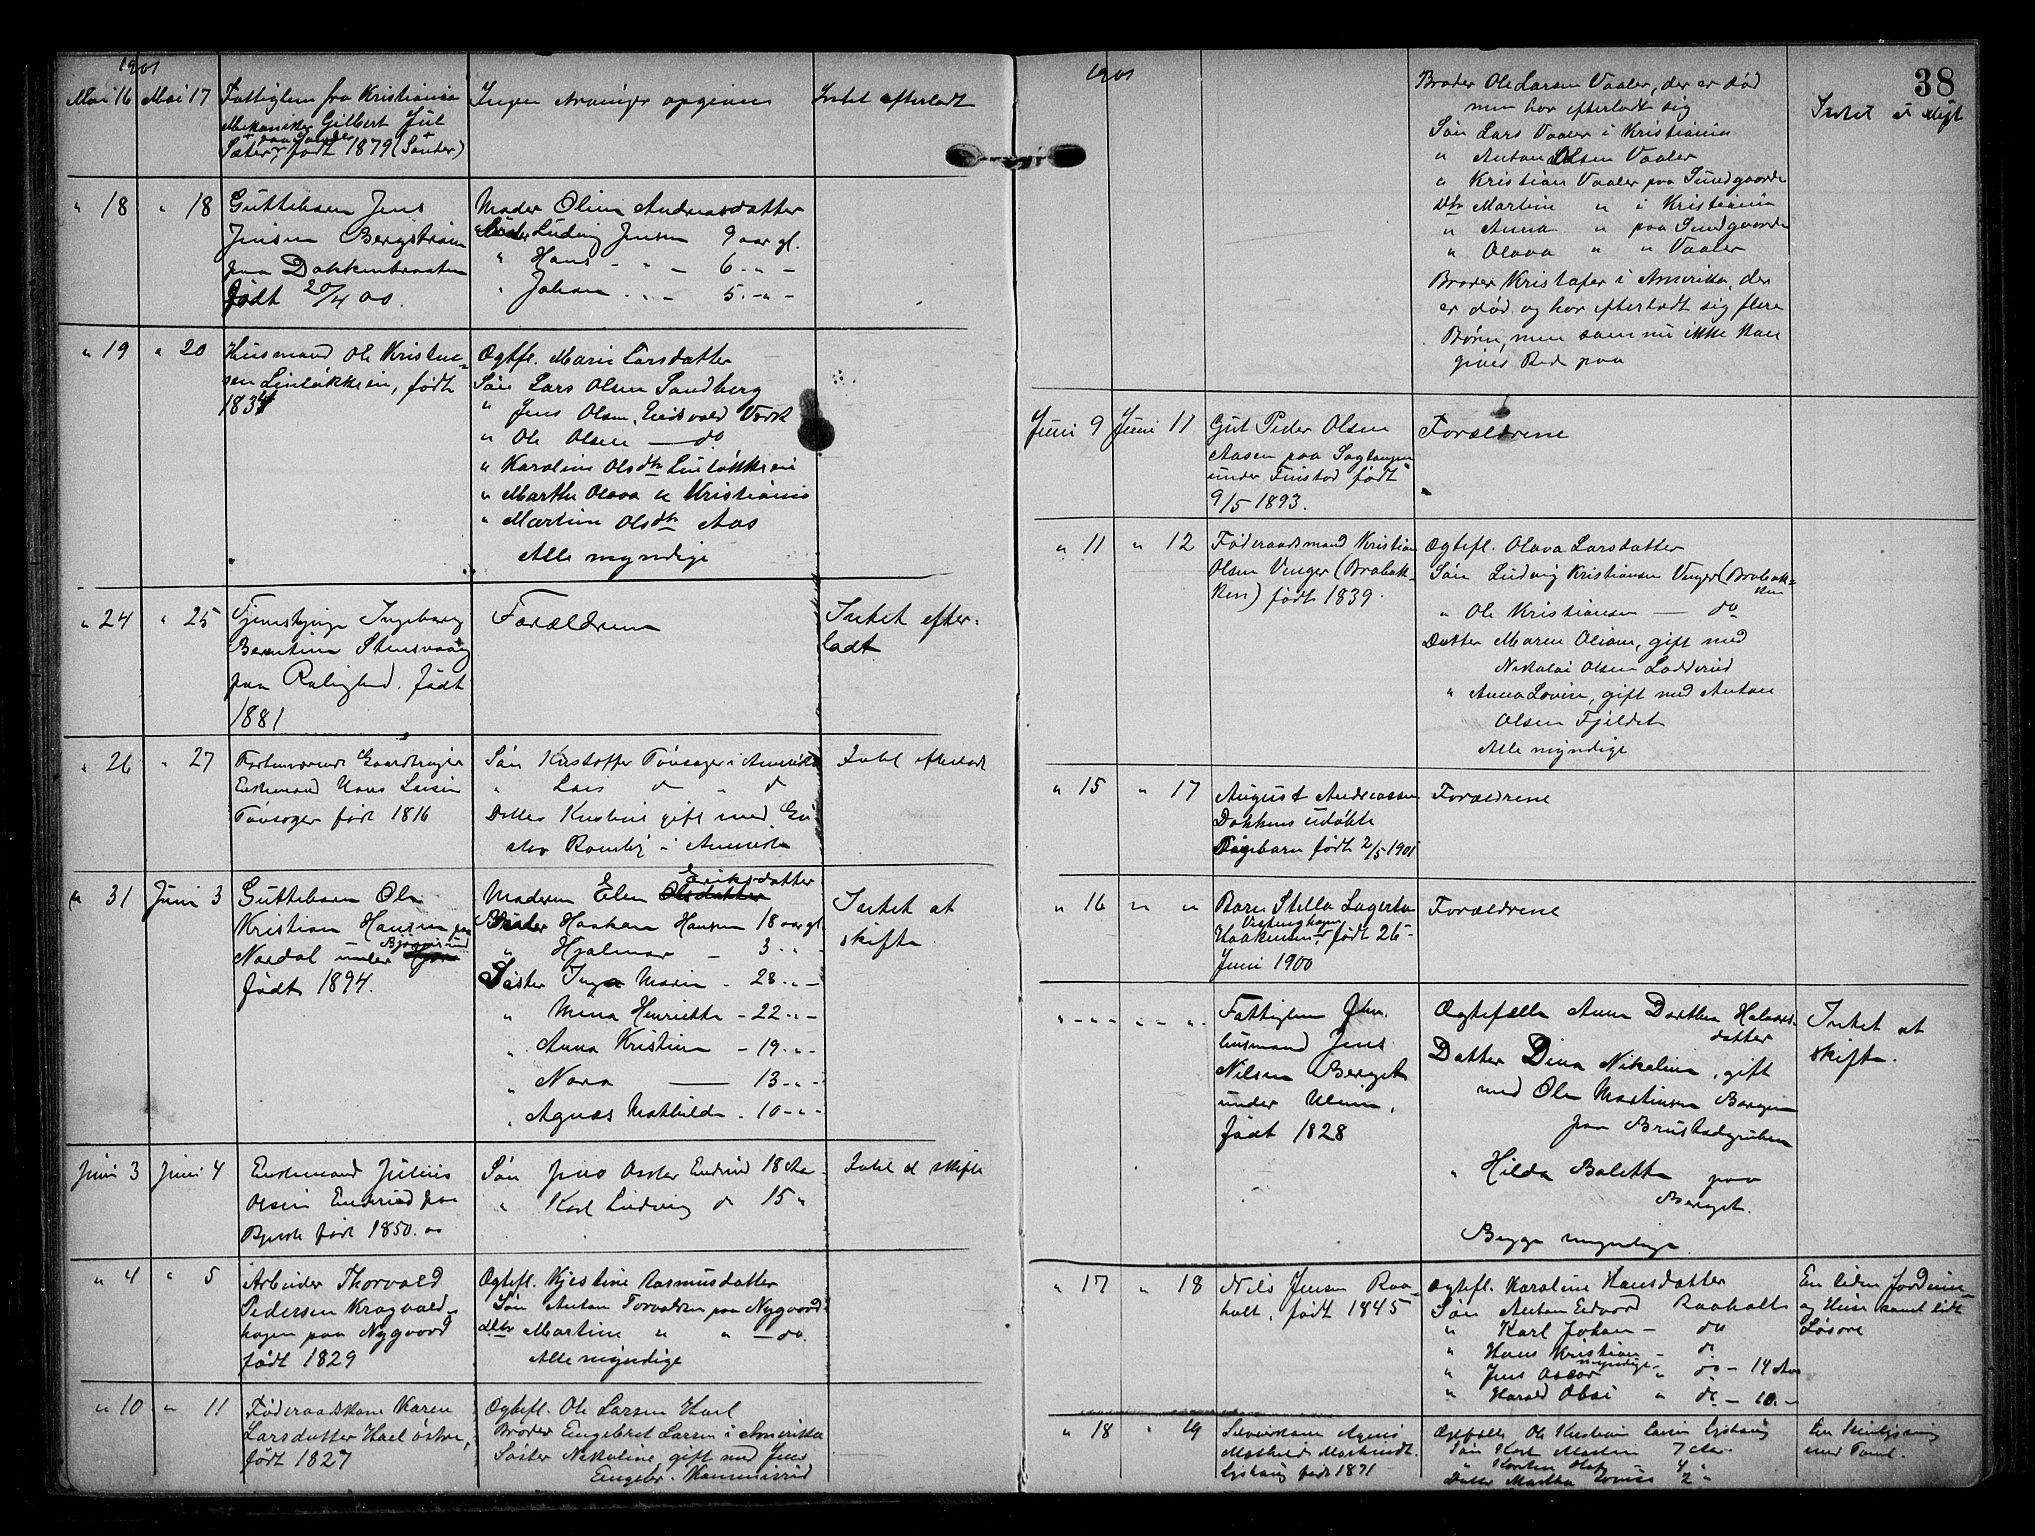 1901
Mai 16 Mai 17 Fattiglem fra Kristiania Ingen Arvinger opgivne Intet efterladt
Mekaniker Gilbert Jul
paa Sander
Sæter, født 1879 (Sander)
" 18 " 18 Guttebarn Jens Moder Olina Andreasdatter
Jensen Bergstrøm Broder Ludvig Jensen 9 aar gl.
paa Dokkenbraaten " Hans - " - 6 - " -
født 20/4 00. " Johan - " - 5 - " -
" 19 " 20 Husmand Ole Kristian- Ægtef. Marie Larsdatter
sen Linløkkeie, født Søn Lars Olsen Sandberg
1834 " Jens Olsen, Eidsvold Værk
" Ole Olsen — do
" Karoline Olsdtr Linløkkeie
" Marthe Olava " Kristiania
" Martine Olsdtr Aas
Alle myndige
" 24 " 25 Tjenestepige Ingeborg Forældrene Intet efter-
Berntine Stensvaag ladt
paa Rolighed. født
1881
" 26 " 27 Forhenværende Gaardbruger Søn Kristoffer Tønsager i Amerika Intet efterladt
Enkemand Hans Larsen " Lars do " do
Tønsager født 1816 Datter Kristine gift med Gu-
stav i Amerika
" 31 Juni 3 Guttebarn Ole Moderen Elen Olsdatter Eriksdatter Intet at
Kristian Hansen paa Broder Haakon Hansen 18 aar gl. skifte.
Nordal under " Hjalmar - 3 " -
født 1894. Søster Inga Marie - 28 " -
" Mina Henriette - 22 " -
" Anna Kristine - 19 " -
" Nora — 13 " -
" Agnes Mathilde - 10 " -
Juni 3 Juni 4 Enkemand Julius Søn Jens Oskar Enerud 18 Aar Intet at skifte
Olsen Enerud paa " Karl Ludvig do 15 "
født 1850.
" 4 " 5 Arbeider Thorvald Ægtef. Kjestine Rasmusdatter
Pedersen Kragvald- Søn Anton Torvaldsen paa Nygaard
hagen paa Nygaard Dtr Martine " " — do.
født 1829 Alle myndige
" 10 " 11 Føderaadskone Karen Ægtef. Ole Larsen Hael
Larsdatter Hael østre, Broder Engebret Larsen i Amerika
født 1827 Søster Nikoline, gift med Jens
Engebr. Kammerud
38
1901
Broder Ole Larsen Vaaler, der er død Intet at skift
men har efterladt sig
Søn Lars Vaaler i Kristiania
" Anton Olsen Vaaler
" Kristian Vaaler paa Sundgaarden
Dtr Martine " i Kristiania
" Anna " paa Sundgaarden
" Olava " " Vaaler
Broder Kristofer i Amerika, der
er død og har efterladt sig flere
Børn, men som nu ikke kan
gives Rede paa
Juni 9 Juni 11 Gut Peder Olsen Forældrene
Aasen paa Saglangen
under Finstad født
9/5 1893.
" 11 " 12 Føderaadsmand Kristian Ægtefl. Olava Larsdatter
Olsen Venger (Brobak- Søn Ludvig Kristiansen Venger (Brobak-
ken) født 1839. ken
" Ole Kristiansen — do
Datter Maren Oliane, gift med
Nikolai Olsen Ladderud
" Anna Lovise, gift med Anton
Olsen Fjeldet
Alle myndige
" 15 " 17 August Andreassen Forældrene
Dokkens udøbte
Pigebarn født 2/5 1901
" 16 " " Barn Stella Lagerta Forældrene
Haakensen, født 26-
Juni 1900
" - - " " - " Fattiglem Fhv. Ægtefælle Anne Dorthea Halvors- Intet at
husmand Jens datter skifte.
Nilsen Berget Datter Dina Nikoline, gift
under Ulvin, med Ole Martinsen Borgen
født 1828 paa Brustadgruben
" Hilda Bolette paa
Berget.
Begge myndige.
" 17 " 18 Nils Jensen Raa- Ægtefl. Karoline Hansdatter En liden Jordeien-
holt, født 1845 Søn Anton Edvard Raaholt og Huse samt lidt
" Karl Johan — do Løsøre
" Hans Kristian - do
myndige
" Jens Oscar " do - 14 Aar
" Harald Obai " do - 10 -
" 18 " 19 Agnes Ægtefælle Ole Kristian Larsen
Mathilde Martinsdt. Søn Karl Martin 7 Aar med Tomt.
født 1871 " Karsten Olaf 4 "
Datter Martha Lovise 2 "